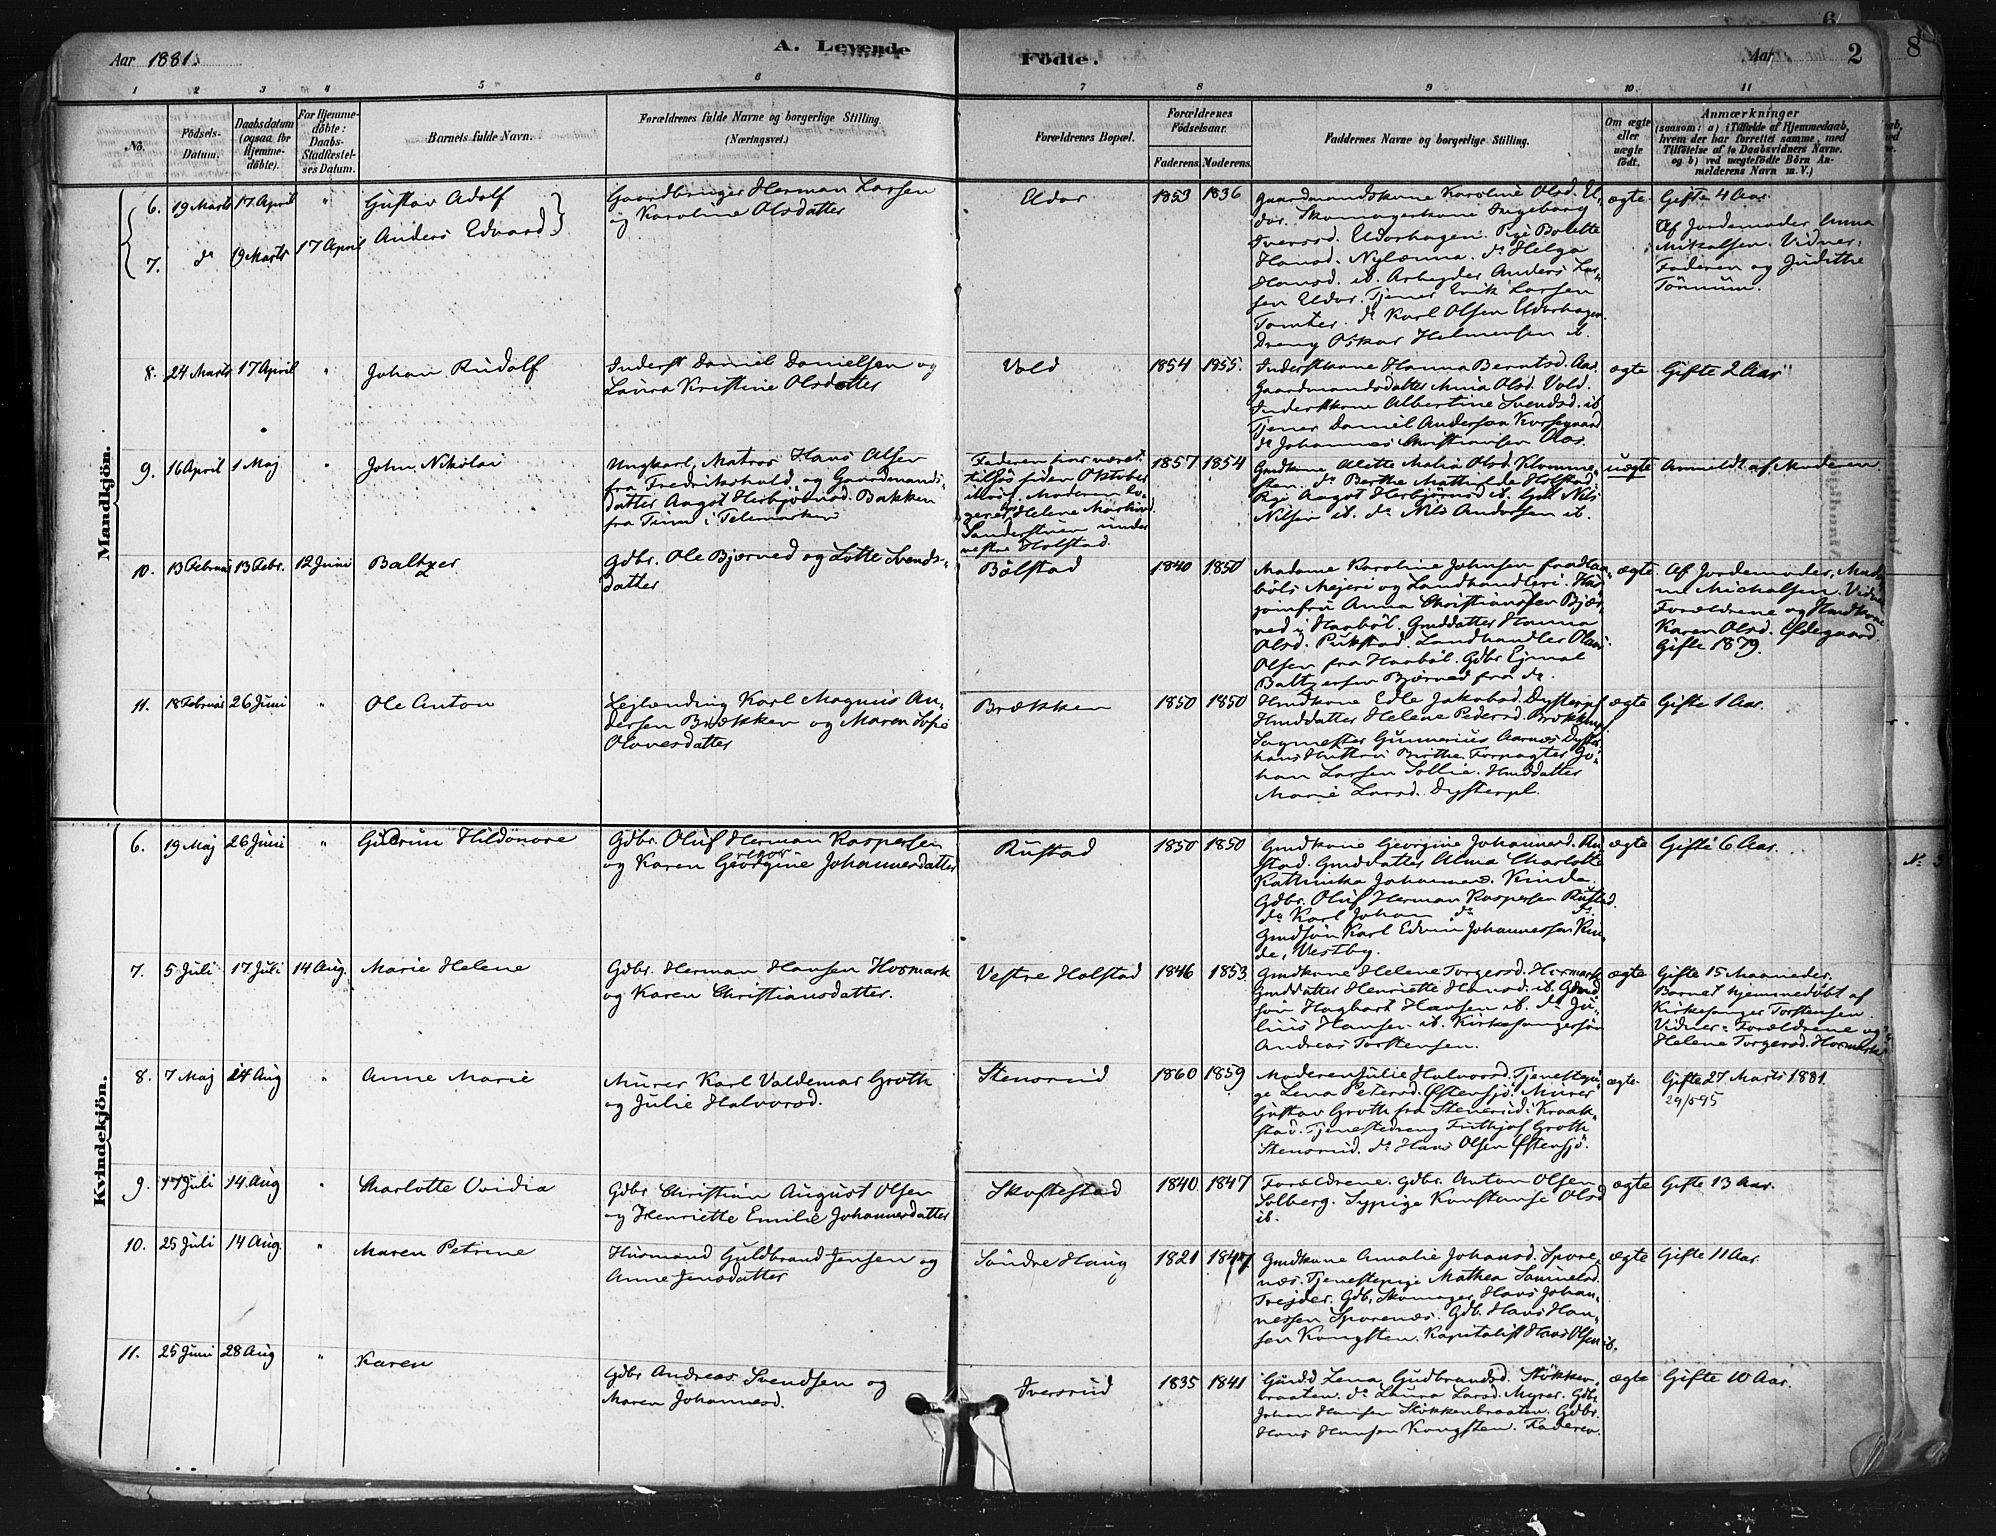 Aar 1881.
A. Levende
Födte.
Aar
2
8
6
1 2 3 4 5 6 7 8 9 10 11
No.
Födsels-Datum.
Daabsdatum (ogsaa for Hjemme-döbte).
For Hjemme-döbte: Daabs-Stadfæstelses Datum.
Barnets fulde Navn.
Forældrenes fulde Navne og borgerlige Stilling (Næringsvei.)
Forældrenes Bopæl.
Forældrenes Födselsaar.
Faderens. Moderens.
Faddernes Navne og borgerlige Stilling.
Om ægte eller uægte födt.
Anmærkninger
(saasom: a) i Tilfælde af Hjemmedaab,
hvem der har forrettet samme, med
Tilföielse af to Daabsvidners Navne.
og b) ved uægtefödte Börn An-
melderens Navn m. V.)
Mandkjön.
6. 19 Marts 17 April " Gustav Adolf
7. do 19 Marts 17 April Anders Edvard
Gaardbruger Herman Larsen
og Karoline Olsdatter
Udor
1853 1836
Gaardmandskone Karoline Olsd. U-
dor. Skomagerkone Ingeborg
Iversd. Udorhagen. Pige Bolette
Hansd. Nylænna. do Helga
Hansd. ib. Arbeyder Anders Lar-
sen Udor. Tjener Erik Larsen
Tomter. do Karl Olsen Udorhagen.
Dreng Oskar Helmersen ib.
ægte
Gifte 4 Aar.
Af Jordemoder Anna
Mikalsen. Vidner:
Faderen og Judithe
Tönnum.
8. 24 Marts 17 April " Johan Rudolf
Inderst Daniel Danielsen og
Laura Kristine Olsdatter
Vold
1854 1855.
Inderstkone Hanna Berntsd. Aas.
Gaardmandsdatter Anna Olsd. Vold.
Inderstkone Albertine Svendsd. ib.
Tjener Daniel Andersen Korsegaard
do Johannes Christiansen Aas.
ægte
Gifte 2 Aar
9. 16 April 1 Maj " John Nikolai
Ungkarl, Matros Hans Olsen
fra Fredrikshald, og Gaardmands-
datter Aagot Herbjörnsd. Bakken
fra Tinn i Telemarken
Faderen har været
tilsös siden Oktober
Sanderstuen under
vestre Holstad.
1857 1854
Gmdkone Alette Malia Olsd. Klomme-
sten. do Berthe Mathilde Holstad
Pige Aagot Herbjörnsd. ib. Gml Nils
Nilsen ib. do Nils Andersen ib.
uægte
Anmeldt af Moderen
10. 13 Februar 13 Febr. 12 Juni Baltzer
Gdbr. Ole Bjerned og Lotte Svends-
datter
Bölstad
1840 1850
Madame Karoline Johnsen fra
böls Mejeri og Landhandleri.
Anna Christiansen Bjær-
ned i Haaböl. Gmddatter Hanna
Olsd. Pukstad. Landhandler Olaus
Olsen fra Haaböl. Gdbr Ejmal
Baltzersen Bjerned fra do.
ægte
Af Jordemoder, Mada-
me Michalsen. Vidner
Forældrene og Hmdkone
Karen Olsd. Ödegaard.
Gifte 1879.
11. 18 Februar 26 Juni " Ole Anton
Lejlending Karl Magnus An-
dersen Brækken og Maren Sofie
Olavesdatter
Brækken
1850 1850
Hmdkone Edle Jakobsd. Dysterpl.
Hmddatter Helene Pedersd. Brækken
Sagmester Gunnerius Aarnæs Dyster
hans Hustru Berthe. Forpagter Jo-
han Larsen Sollie. Hmddatter
Marie Larsd. Dysterpl.
ægte
Gifte 1 Aar.
Kvindekjön.
6. 19 Maj 26 Juni " Gudrun Hildonore
Gdbr. Oluf Herman Kaspersen
og Karen Georgine Johannesdatter
Rustad
1850 1850
Gmdkone Georgine Johannesd. Ru-
stad. Gmddatter Alma Charlotte
Kathinka Johannesd. Kinde.
Gdbr. Oluf Herman Kaspersen Rustad.
do Karl Johan do do.
Gmdsön Karl Edvin Johannessen Kin-
de, Vestby.
ægte
Gifte 6 Aar.
7. 5 Juli 17 Juli 14 Aug. Marie Helene
Gdbr. Herman Hansen Hormark
og Karen Christiansdatter.
Vestre Holstad
1846 1853
Gmdkone Helene Torgersd. Hormark
Gmddatter Henriette Hansd. ib. Gmd
sön Hagbart Hansen ib. do Ju-
lius Hansen ib. Kirkesangersön
Andreas Torstensen.
ægte
Gifte 15 Maaneder.
Barnet hjemmedöbt af
Kirkesanger Torstensen.
Vidner: Forældrene og
Helene Torgersd. Hormark
8. 7 Maj 24 Aug " Anne Marie
Murer Karl Valdemar Groth
og Julie Halvorsd.
Stensrud
1860 1859
Moderen Julie Halvorsd. Tjenestepi-
ge Lena Petersd. Östensjö. Murer
Gustav Groth fra Stensrud i Kraak-
stad. Tjenestedreng Frithjof Groth
Stensrud. do Hans Olsen Östensjö.
ægte
Gifte 27 Marts 1881.
29/5 95
9. 17 Juli 14 Aug " Charlotte Ovidia
Gdbr Christian August Olsen
og Henriette Emilie Johannesdatter
Skoftestad
1840 1847
Forældrene. Gdbr. Anton Olsen
Solberg. Sypige Konstanse Olsd
ib.
ægte
Gifte 13 Aar.
10. 25 Juli 14 Aug. " Maren Petrine
Husmand Guldbrand Jensen og
Anne Jensdatter
Söndre Haug
1821 1847
Gmdkone Amalie Johansd. Spore-
næs. Tjenestepige Mathea Samuelsd.
Trejder. Gdb. Skomager Hans Johan-
nessen Sporenæs. Gdb. Hans Han-
sen Kongsten. Kapitalist Hans Olsen ib.
ægte
Gifte 11 Aar.
11. 25 Juni 28 Aug " Karen
Gdbr Andreas Svendsen og
Maren Johannesd.
Iversrud
1835 1841
Gmdd Lena Gudbrandsd. Stökken-
braaten. do Laura Larsd. Myrer. Gdbr.
Johan Hansen Stökkenbraaten. Gdbr.
Hans Hansen Kongsten. Faderen.
ægte
Gifte 10 Aar.